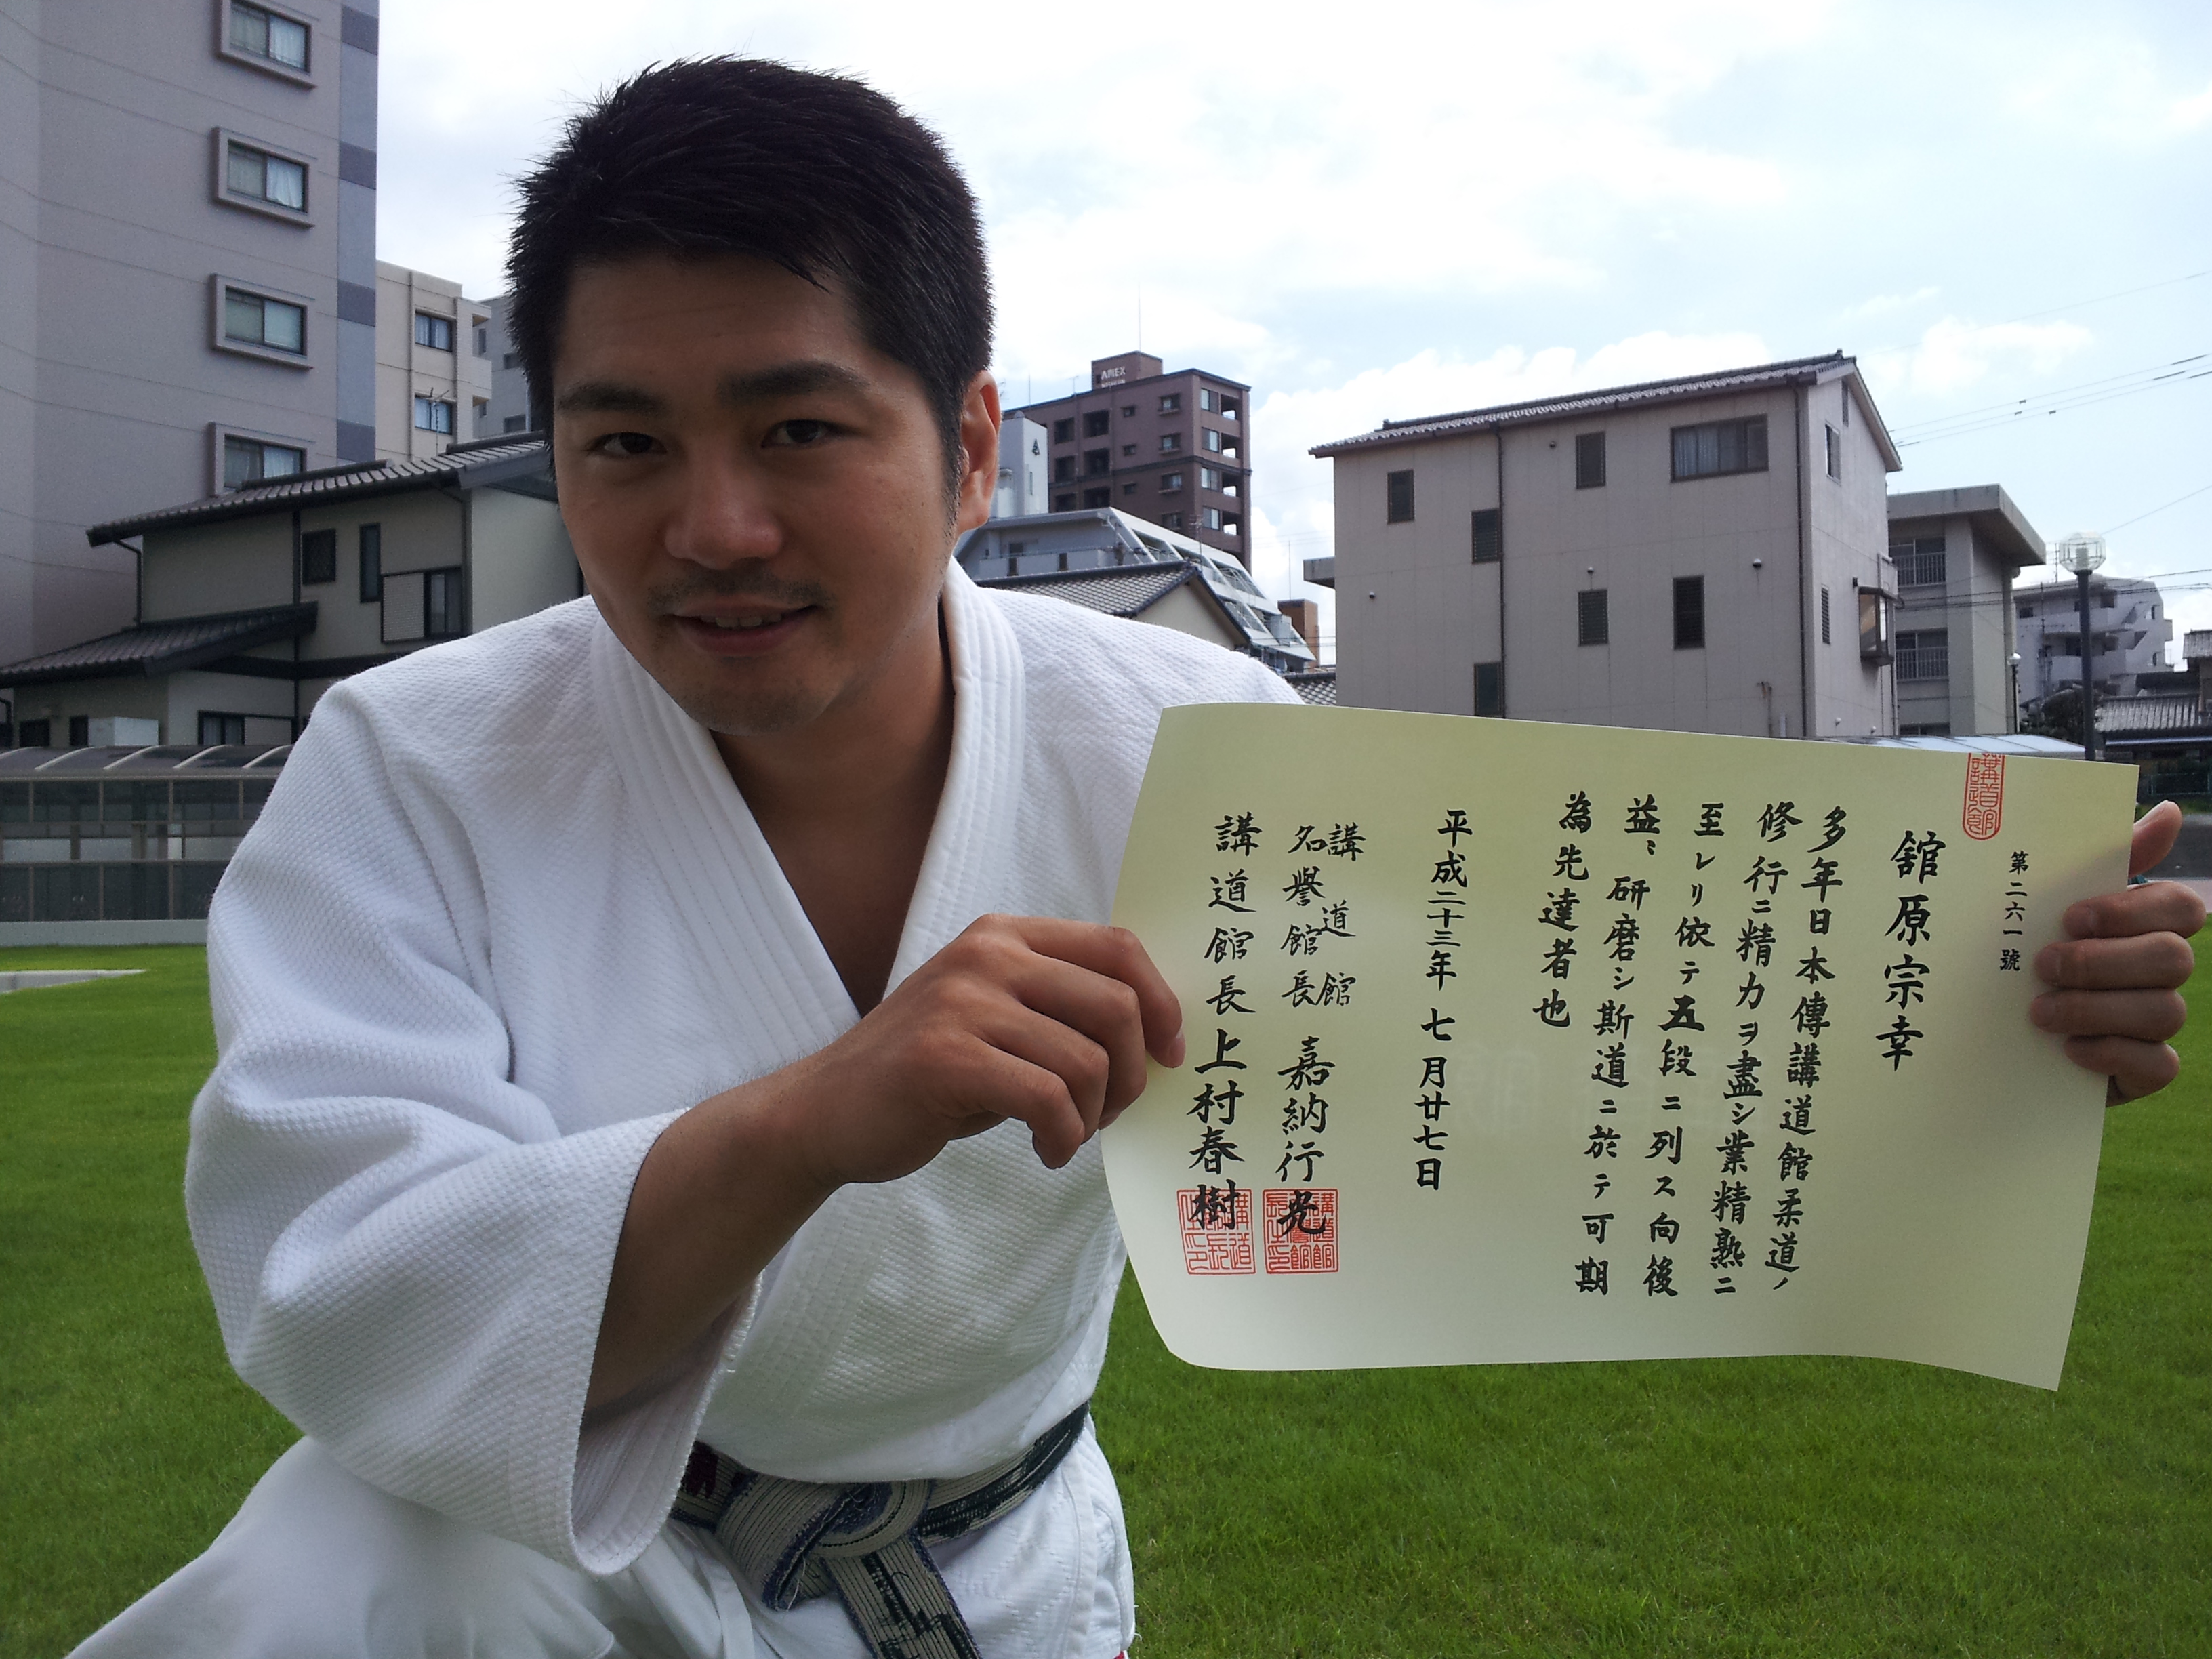 第二六一號
講道館
舘原宗幸
多年日本傳講道館柔道ノ
修行ニ精力ヲ盡シ業精熟ニ
至レリ依テ五段ニ列ス向後
益〻研磨シ斯道ニ於テ可期
為先達者也
平成二十三年七月廿七日
講道館
名譽館長 嘉納行光
講道館長上村春樹
APEX